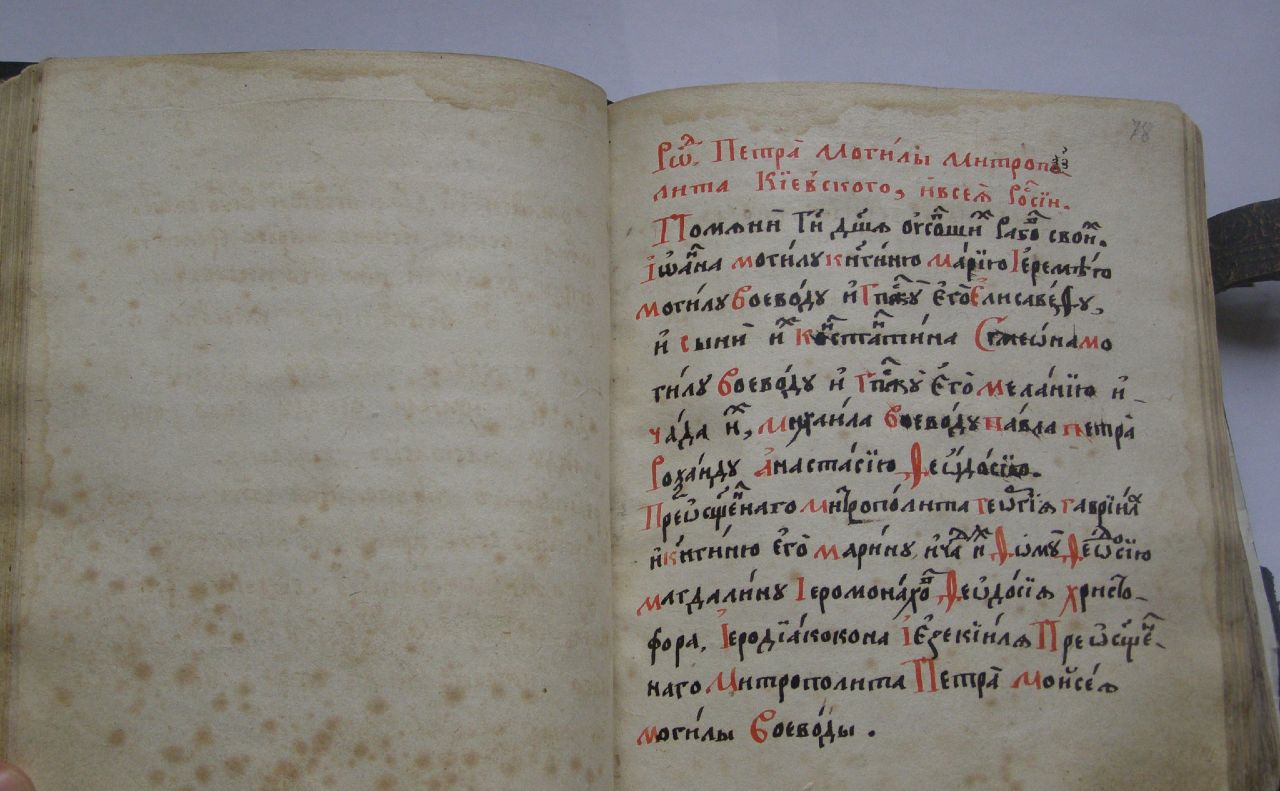 78
Рѡⷣ. Петра̀ Моги́лы митропо-
лита Кїевского, и҆всеѧ̀ Росїи.
Помѧни Гⷭ҇и дш҃а ᲂу҆сопших рабѡⷡ свои.
Іѡа́нна моги́лу кнѧгиню Ма́рїю Іеремѣ́ю
моги́лу воево́ду и҆ Гпⷭ҇жу є҆го̀ Єлисаве́ѳу,
и҆ сыни иⷯ Костанти́на Симеѡ́на мо
ги́лу воево́ду и҆ Гпⷭ҇жу є҆го̀ Мела́нїю и҆-
ча́да иⷯ, Михаи́ла воево́ду па́вла петра̀
Рохѧ́нду а҆наста́сїю Ѳеѡ҆до́сїю.
Преѡсщ҃еннаго митропо́лита геѡ́ргїѧ гаврїи́ла
и҆ кнѧги́ню є҆го̀ мари́ну, и҆ чаⷣ иⷯ Ѳѡмꙋ̀ Ѳеѡⷣсїю
магдали́ну Іеромона́хѡⷡ Ѳеѡ҆до́сїѧ христо-
фора, Іеродїа́кокона Іезекїи́лѧ Преѡсщ҃ен-
наго Митрополита Петра̀ Мойсе́ѧ
моги́лы воево́ды .